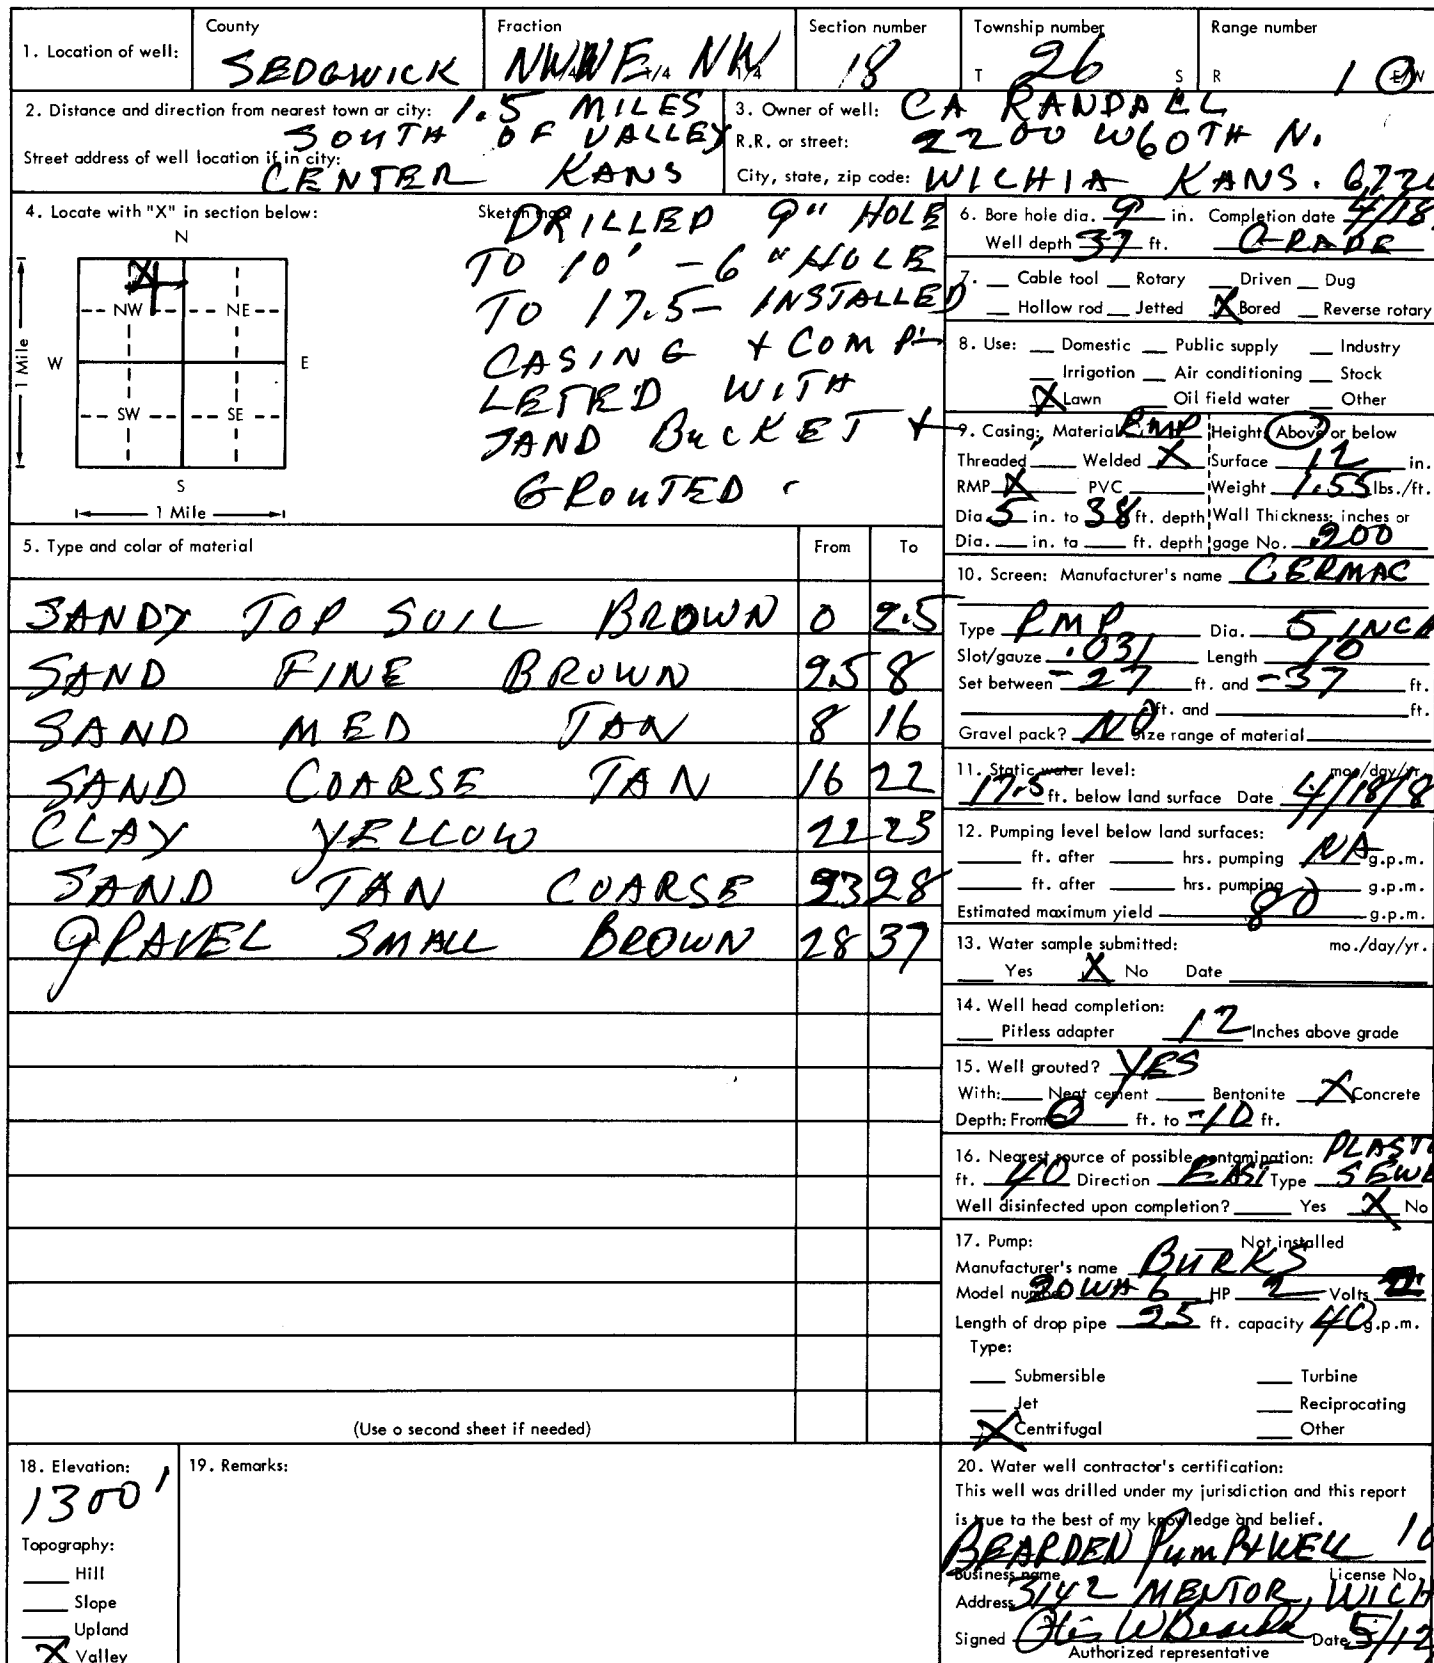 1. Location of well: County SEDGWICK Fraction NW 1/4 NE 1/4 NW 1/4 Section number 18 Township number T 26 S Range number R 1 E/W
2. Distance and direction from nearest town or city: 1.5 MILES
SOUTH OF VALLEY
Street address of well location if in city:
CENTER KANS
3. Owner of well: CA RANDALL
R.R. or street: 2200 W60TH N.
City, state, zip code: WICHIA KANS. 672
4. Locate with "X" in section below:
N
NW NE
W E
SW SE
S
1 Mile
1 Mile
Sketch map:
DRILLED 9" HOLE
TO 10' - 6" HOLE
TO 17.5 - INSTALLED
CASING + COMP-
LETED WITH
SAND BUCKET +
GROUTED.
5. Type and color of material From To
SANDY TOP SOIL BROWN 0 2.5
SAND FINE BROWN 2.5 8
SAND MED TAN 8 16
SAND COARSE TAN 16 22
CLAY YELLOW 22 23
SAND TAN COARSE 23 28
GRAVEL SMALL BROWN 28 37
(Use o second sheet if needed)
6. Bore hole dia. 9 in. Completion date 4/18
Well depth 37 ft. GRADE
7. Cable tool Rotary Driven Dug
Hollow rod Jetted X Bored Reverse rotary
8. Use: Domestic Public supply Industry
Irrigation Air conditioning Stock
X Lawn Oil field water Other
9. Casing: Material RMP Height: Above or below
Threaded Welded X Surface 12 in.
RMP X PVC Weight 1.55 lbs./ft.
Dia. 5 in. to 38 ft. depth Wall Thickness: inches or
Dia. in. to ft. depth gage No. .200
10. Screen: Manufacturer's name CERMAC
Type RMP Dia. 5 INCH
Slot/gauze .031 Length 10
Set between -27 ft. and -37 ft.
ft. and ft.
Gravel pack? NO Size range of material
11. Static water level: mo./day/yr.
17.5 ft. below land surface Date 4/18/8
12. Pumping level below land surfaces:
ft. after hrs. pumping NA g.p.m.
ft. after hrs. pumping g.p.m.
Estimated maximum yield 80 g.p.m.
13. Water sample submitted: mo./day/yr.
Yes X No Date
14. Well head completion:
Pitless adapter 12 Inches above grade
15. Well grouted? YES
With: Neat cement Bentonite X Concrete
Depth: From 0 ft. to -10 ft.
16. Nearest source of possible contamination: PLASTIC
ft. 40 Direction EAST Type SEWE
Well disinfected upon completion? Yes X No
17. Pump: Not installed
Manufacturer's name BURKS
Model number 20WA6 HP 2 Volts
Length of drop pipe 25 ft. capacity 40 g.p.m.
Type:
Submersible Turbine
Jet Reciprocating
X Centrifugal Other
18. Elevation:
1300'
Topography:
Hill
Slope
Upland
X Valley
19. Remarks:
20. Water well contractor's certification:
This well was drilled under my jurisdiction and this report
is true to the best of my knowledge and belief.
BEARDEN PUMP & WELL 10
Business name License No.
Address 3142 MENTOR, WICH
Signed Otis W Bearden Date 5/12
Authorized representative